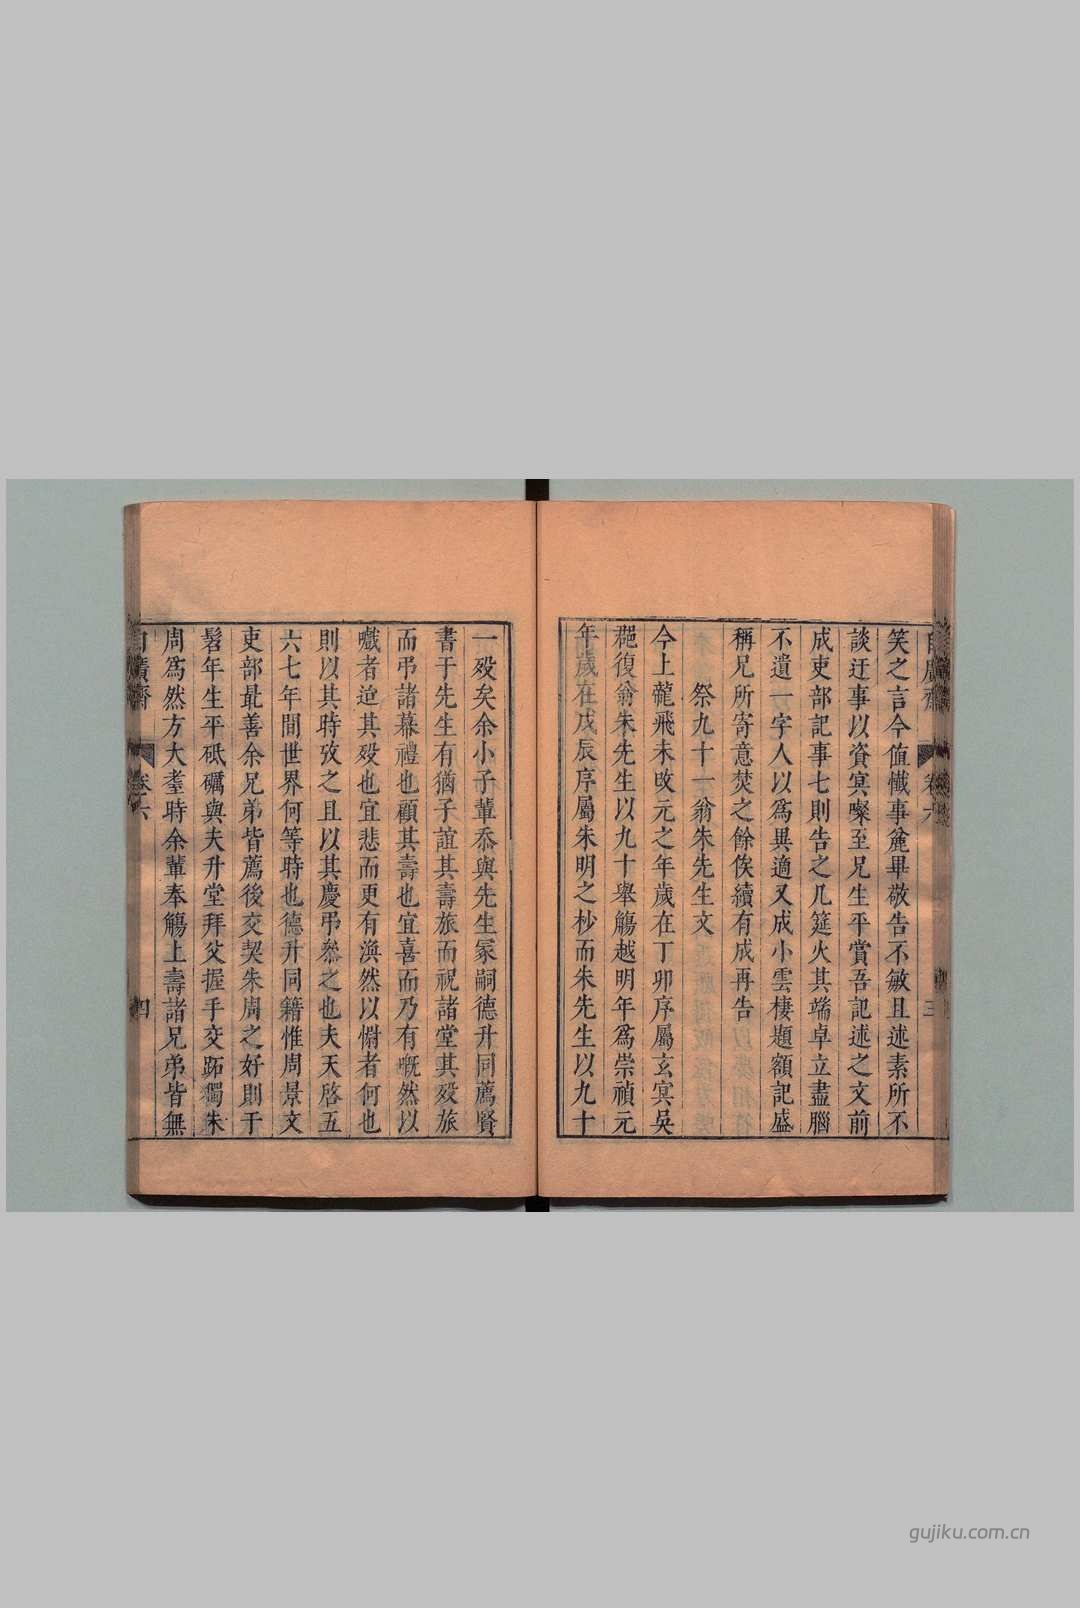 自廣齋
卷六
三
笑之言今值懺事麄畢敬告不敏且述素所不
談迂事以資冥嚛至兄生平賞吾記述之文前
成吏部記事七則告之几筵火其端卓立盡腦
不遺一字人以為異適又成小雲棲題額記盛
稱兄所寄意焚之餘俟續有成再告
祭九十一翁朱先生文
今上龍飛未改元之年歲在丁卯序屬玄冥吳
祂復翁朱先生以九十舉觴越明年為崇禎元
年歲在戊辰序屬朱明之杪而朱先生以九十
一歿矣余小子輩忝與先生冢嗣德升同薦賢
書于先生有猶子誼其壽旅而祝諸堂其歿旅
而弔諸幕禮也顧其壽也宜喜而乃有嘅然以
嚱者迨其歿也宜悲而更有渙然以慴者何也
則以其時攷之且以其慶弔叅之也夫天啓五
六七年間世界何等時也德升同籍惟周景文
吏部最善余兄弟皆薦後交契朱周之好則于
髫年生平砥礪與夫升堂拜父握手交跖獨朱
周為然方大耋時余輩奉觴上壽諸兄弟皆無
自廣齋
卷六
四
gujiku.com.cn